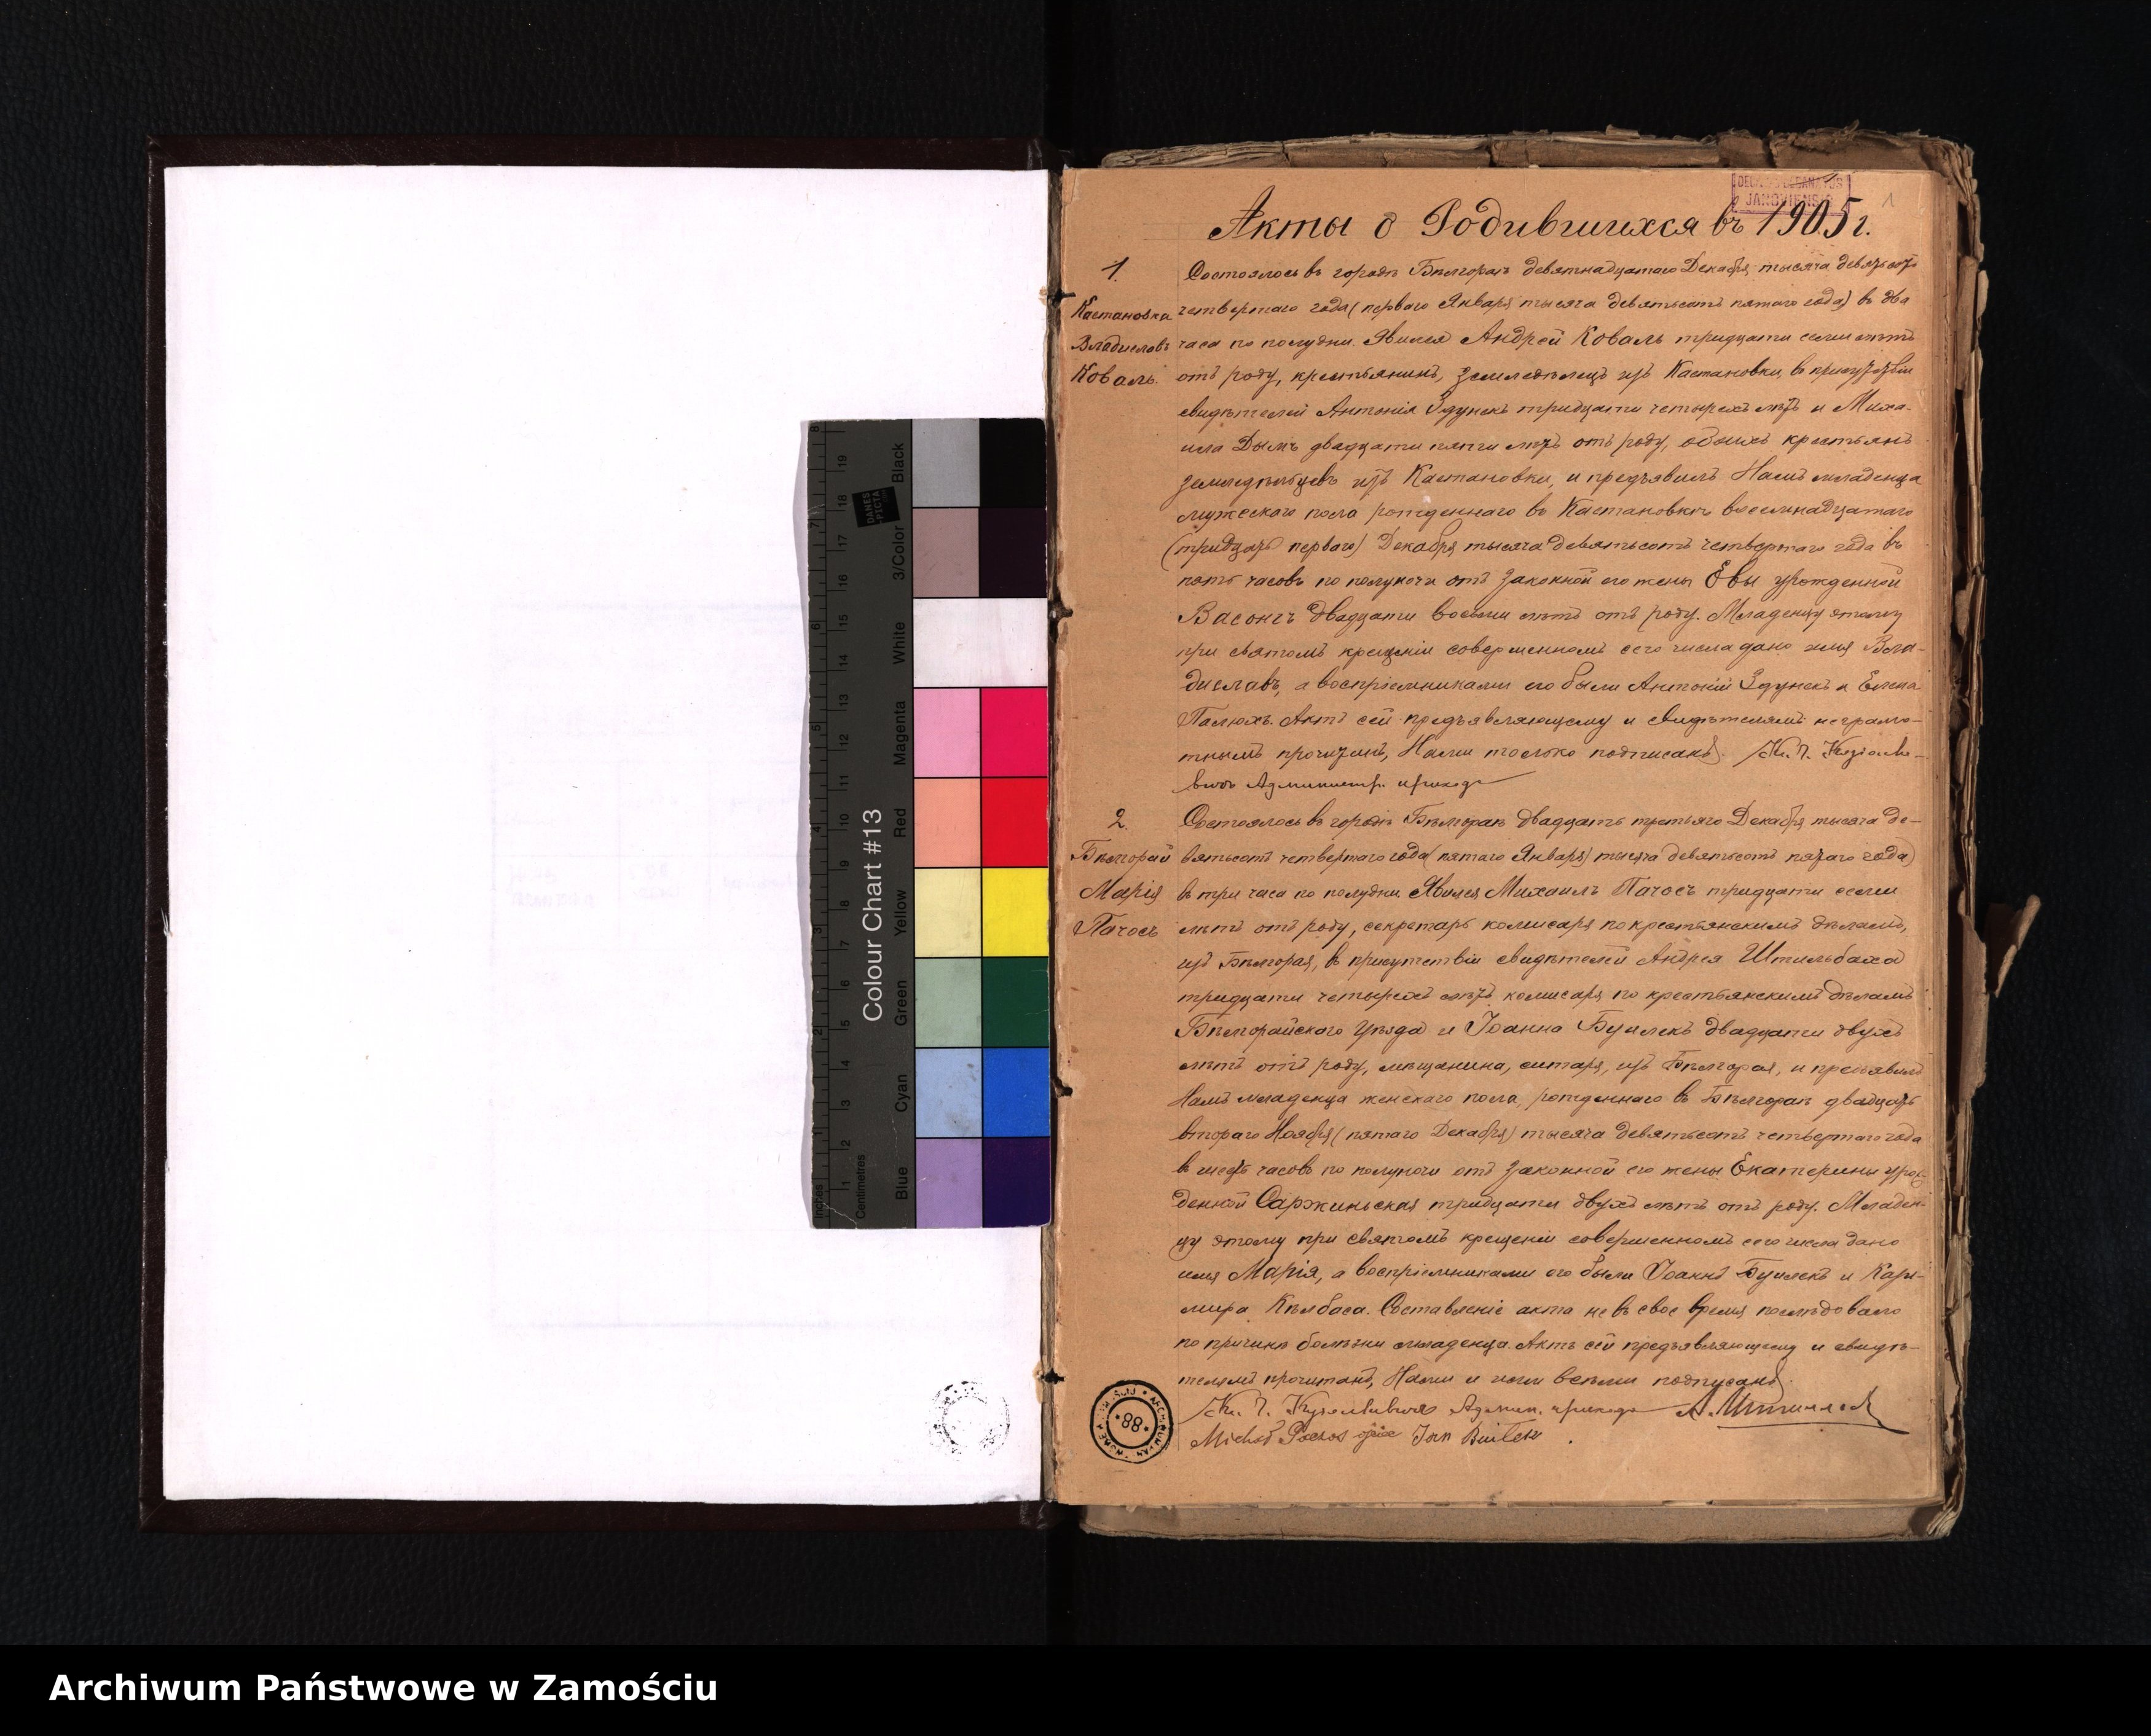 Акты о Родившихся въ 1905 г.
1
JANOWIENSIS
1.
Кастановка
Владиславъ
Коваль.
Состоялось въ городѣ Бѣлгораѣ девятнадцатаго Декабря тысяча девятьсотъ
четвертаго года (перваго Января тысяча девятьсотъ пятаго года) въ два
часа по полудни. Явился Андрей Коваль тридцати семи лѣтъ
отъ роду, крестьянинъ, земледѣлецъ изъ Кастановки, въ присутствіи
свидѣтелей Антонія Здунекъ тридцати четырехъ лѣтъ и Миха-
ила Дымъ двадцати пяти лѣтъ отъ роду, обоихъ крестьянъ
земледѣльцевъ изъ Кастановки, и предъявилъ Намъ младенца
мужескаго пола рожденнаго въ Кастановкѣ восемнадцатаго
(тридцать перваго) Декабря тысяча девятьсотъ четвертаго года въ
пять часовъ по полуночи отъ законной его жены Евы урожденной
двадцати восьми лѣтъ отъ роду. Младенцу этому
при святомъ крещеніи совершенномъ сего числа дано имя Вла-
диславъ, а воспріемниками его были Антоній Здунекъ и Елена
Палюхъ. Актъ сей предъявляющему и свидѣтелямъ неграмо-
тнымъ прочитанъ, Нами только подписанъ.
Администр. прихода
2.
Бѣлгорай
Марія
Пачосъ
Состоялось въ городѣ Бѣлгораѣ двадцать третьяго Декабря тысяча де-
вятьсотъ четвертаго года (пятаго Января) тысяча девятьсотъ пятаго года)
въ три часа по полудни. Явился Михаилъ Пачосъ тридцати семи
лѣтъ отъ роду, секретарь комисара по крестьянскимъ дѣламъ,
изъ Бѣлгорая, въ присутствіи свидѣтелей Андрея Штильбаха
тридцати четырехъ лѣтъ комисара по крестьянскимъ дѣламъ
Бѣлгорайскаго Уѣзда и Іоанна Буилекъ двадцати двухъ
лѣтъ отъ роду, мѣщанина, ситаря, изъ Бѣлгорая, и предъявилъ
Намъ младенца женскаго пола, рожденнаго въ Бѣлгораѣ двадцать
втораго Ноября (пятаго Декабря) тысяча девятьсотъ четвертаго года
въ шесть часовъ по полуночи отъ законной его жены Екатерины урож-
денной Саржиньская тридцати двухъ лѣтъ отъ роду. Младен-
цу этому при святомъ крещеніи совершенномъ сего числа дано
имя Марія, а воспріемниками его были Іоаннъ Буилекъ и Кази-
мира Кѣлбаса. Составленіе акта не въ свое время послѣдовало
по причинѣ болѣзни младенца. Актъ сей предъявляющему и свидѣ-
телямъ прочитанъ, Нами и ими всѣми подписанъ.
Админ. прихода
Michał Paczos ojciec Jan Builek.
88
Colour Chart #13
Black
3/Color
White
Magenta
Red
Yellow
Green
Cyan
Blue
DANES
PICTA
Centimetres
Inches
1 2 3 4 5 6 7 8 9 10 11 12 13 14 15 16 17 18 19
1 2 3 4 5 6 7 8
Archiwum Państwowe w Zamościu